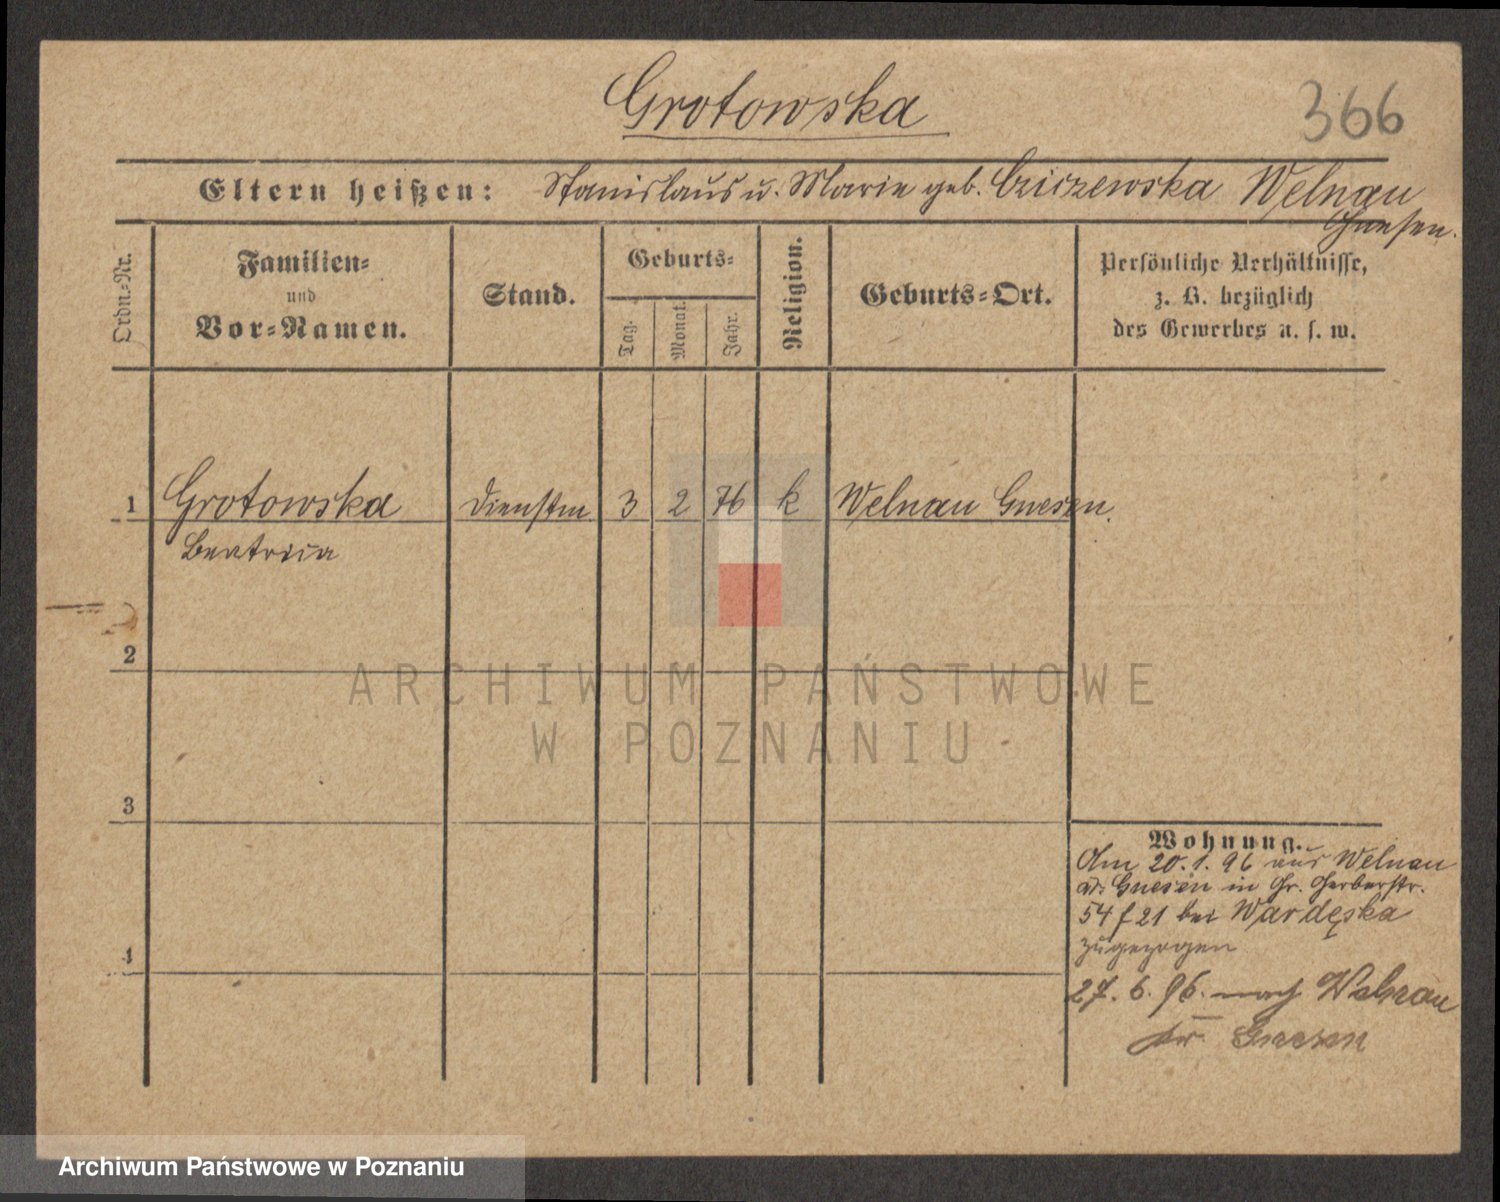 Grotowska
366
Eltern heißen: Stanislaus u. Marie geb. Cziczewska Welnau
Gnesen.
Ordn.-Nr.
Familien-
und
Vor-Namen.
Stand.
Geburts-
Tag.
Monat.
Jahr.
Religion.
Geburts-Ort.
Persönliche Verhältnisse,
z. B. bezüglich
des Gewerbes u. s. w.
1 Grotowska Dienstm 3 2 76 k Welnau Gnesen.
Beatricia
2
3
4
Wohnung.
Am 20.1.96 aus Welnau
Gnesen in Gr. Gerberstr.
54 f 21 bei Wardęska
zugezogen
27. 6. 96. nach Welnau
Kr. Gnesen
ARCHIWUM PAŃSTWOWE
W POZNANIU
Archiwum Państwowe w Poznaniu